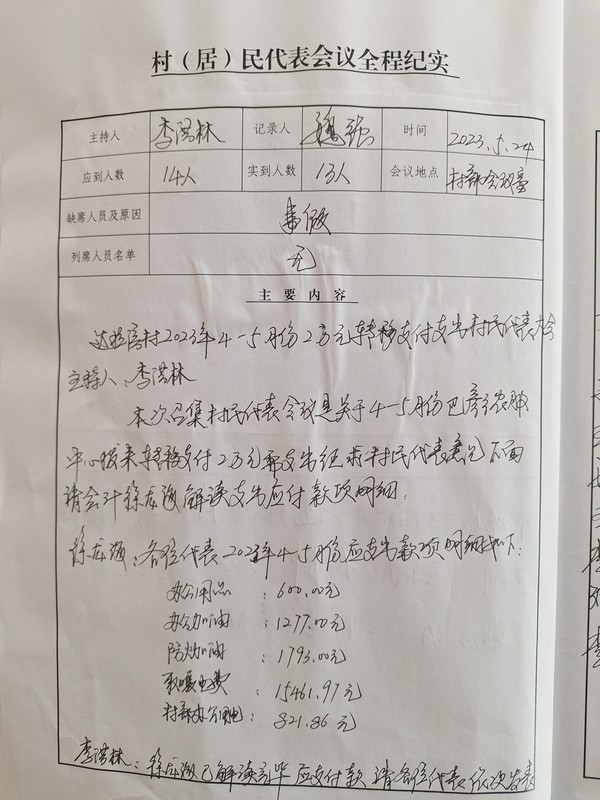 村（居）民代表会议全程纪实
主持人 李洪林 记录人 魏强 时间 2023.5.24
应到人数 14人 实到人数 13人 会议地点 村部会议室
缺席人员及原因 事假
列席人员名单 无
主要内容
村2023年4-5月份2万元转移支付支出村民代表大会
主持人：李洪林
本次召集村民代表会议是关于4-5月份巴彦农
中心拨来转移支付2万元需支出征求村民代表意见下面
请会计徐龙海解读支出应付款项明细.
徐龙海：各位代表2023年4-5月份应支出款项明细如下：
办公用品：600.00元
办公加油：1277.00元
防火加油：1793.00元
取暖电费：15461.97元
村部办公用电：821.86元
李洪林：徐龙海已解读完毕应付款 请各位代表依次发表